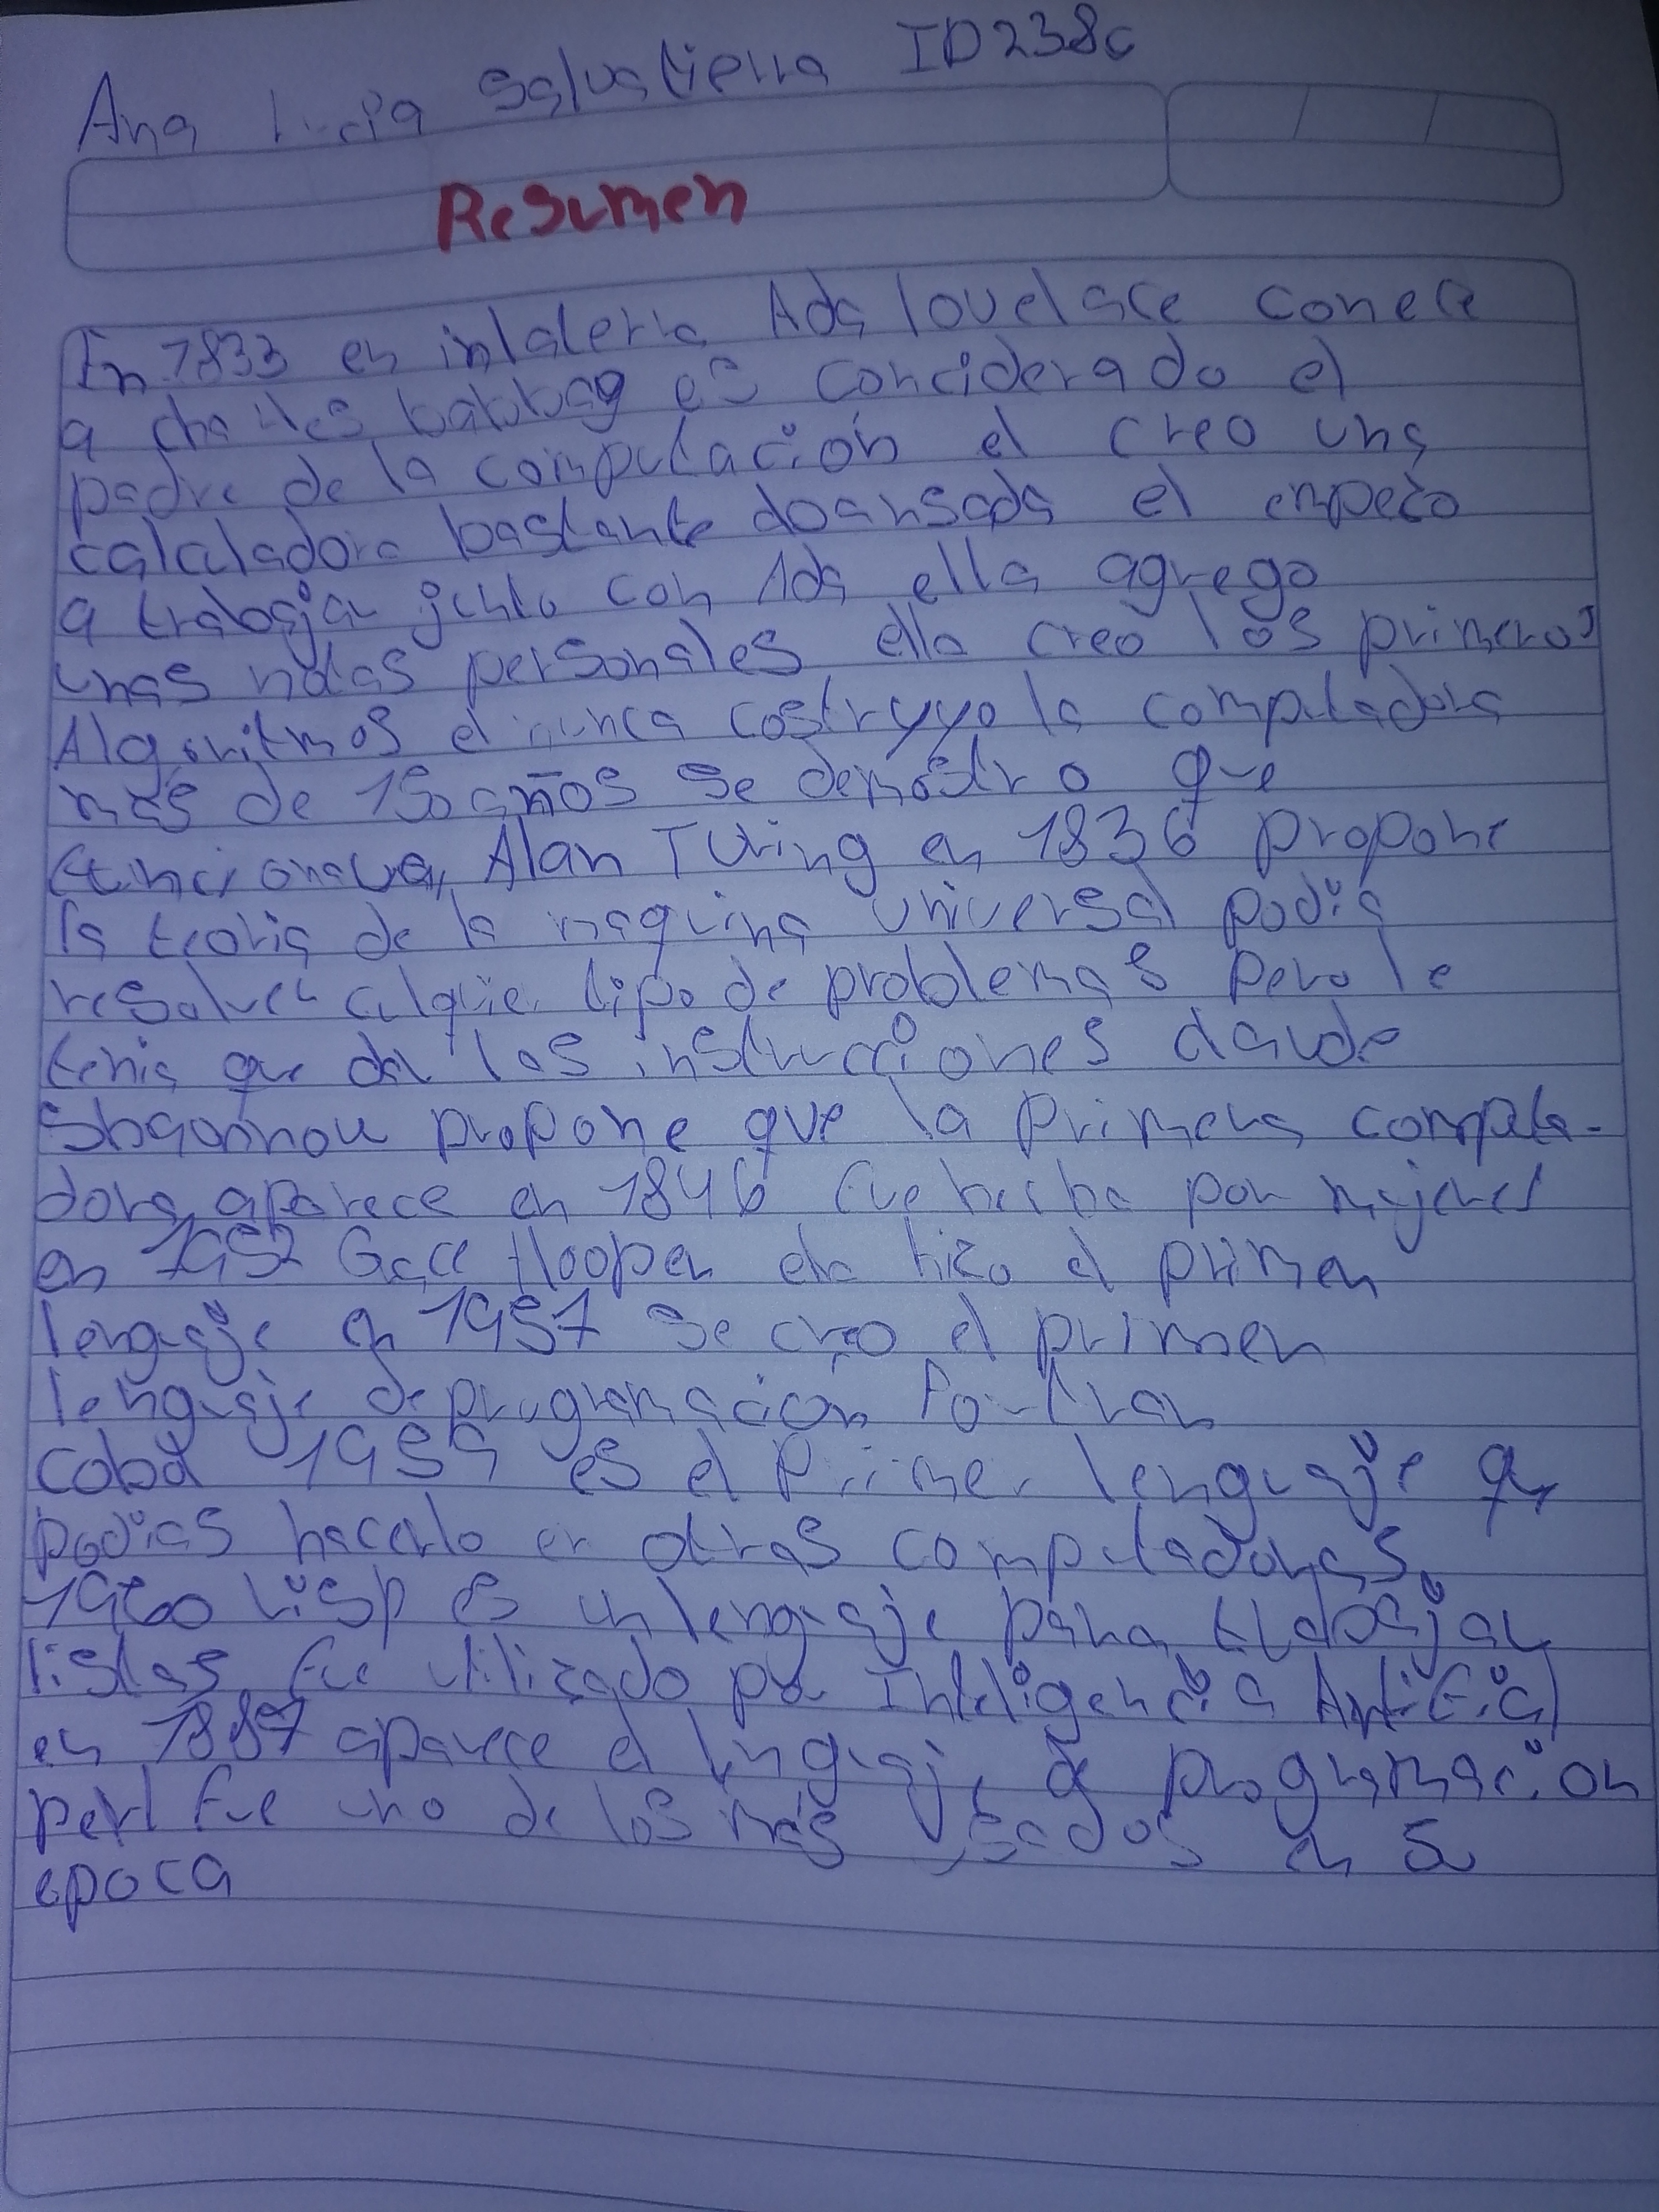 Ana Lucia Salvatierra ID238c
Resumen
En 1833 en inlaterra Ada lovelace conece
a charles babbag es conciderado el
padre de la computación el creo una
calculadora bastante doansada el empezo
a trabajar junto con Ada ella agrego
unas notas personales ella creo los primeros
Algoritmos el nunca costryyo la computadora
más de 150 años se demostro que
funcionava, Alan Turing en 1836 propone
la teoria de la maquina universal podia
resolver cualquier tipo de problemas pero le
tenia que dar las instrucciones claude
Shgannon propone que la primera computa-
dora aparece en 1846 fue hecha por mujeres
en 1952 Gace Hooper ella hizo el primer
lenguaje en 1957 se creo el primer
lenguaje de programación Fortran
cobol 1959 es el Primer lenguaje que
podias hacerlo en otras computadoras
1960 Lisp es un lenguaje para trabajar
listas fue utilizado por Inteligencia Artificial
en 1887 aparece el linguaje de programacion
perl fue uno de los más usados en su
epoca